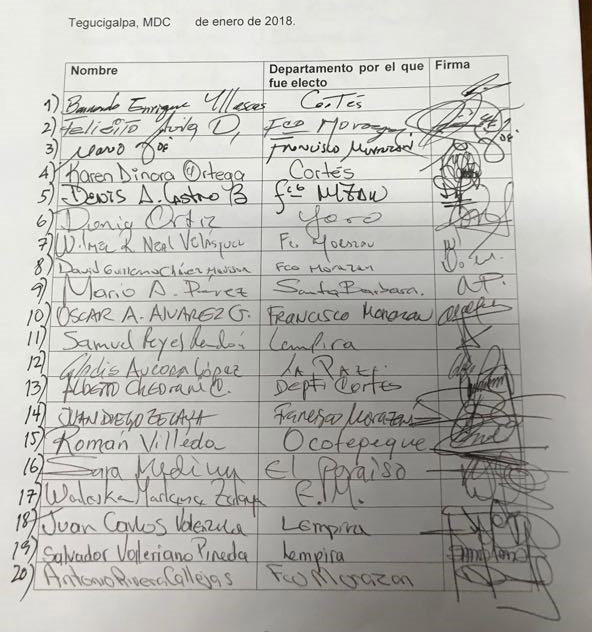 Tegucigalpa, MDC de enero de 2018.
Nombre Departamento por el que fue electo Firma
1) Enrique Villegas Cortés
2) Felicito Avila O, Fco Morazan
3) Mario Francisco Morazan
4) Karen Dinora Ortega Cortés
5) Denis A. Castro B fco MZAN
6) Denia Ortiz Yoro
7) Wilmer R Neal Velasquez Fco Morazan
8) David Guillermo Chávez Madison Fco Morazan
9) Mario A. Pérez Santa Barbara.
10) OSCAR A. ALVAREZ G. FRANCISCO Morazan
11) Samuel Reyes Rendón Lempira
12) Gladis Aurora López LA PAZ.
13) ALBERTO CHEDRANI C. Depti Cortes
14) JUAN DIEGO ZELAYA Francisco Morazan
15) Román Villeda Ocotepeque
16) Sara Medina El Paraiso
17) Waleska Marlene Zelaya F.M.
18) Juan Carlos Valenzuela Lempira
19) Salvador Valeriano Pineda Lempira
20) Antonio Rivera Callejas Fco Morazan